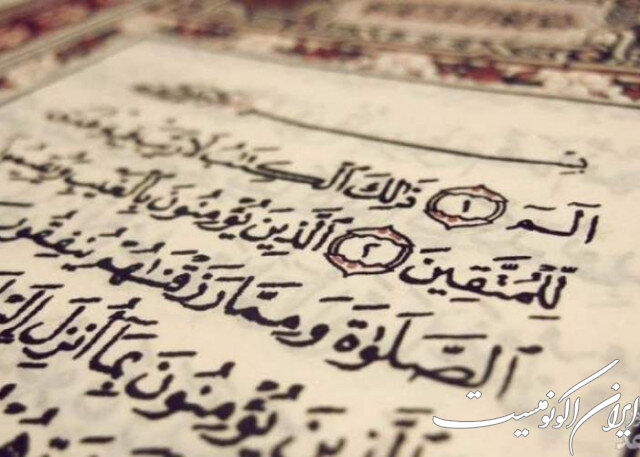 بِسْـ
الٓمٓ ۝١ ذَٰلِكَ ٱلْكِتَٰبُ لَا رَيْبَ فِيهِ هُدًى
لِّلْمُتَّقِينَ ۝٢ ٱلَّذِينَ يُؤْمِنُونَ بِٱلْغَيْبِ وَيُقِيمُونَ
ٱلصَّلَوٰةَ وَمِمَّا رَزَقْنَٰهُمْ يُنفِقُونَ
يُؤْمِنُونَ بِمَآ أُنزِلَ إِلَيْكَ
ایران اکونومیست